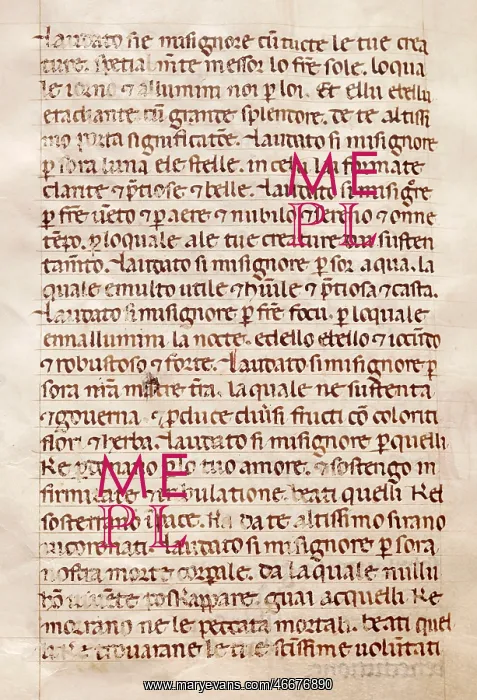 Laudato sie misignore cū tucte le tue crea
ture. spetialmēte messor lo frē sole. loqua
le iorno ⁊ allumini noi p loi. Et ellu ellu
etradiante cū grante splendore. de te altissi
mo porta significatōe. Laudato si misignore
p sora luna ele stelle. in celu la formate
clarite ⁊ ptiose ⁊ belle. Laudato si misigre
p frē uēto ⁊ p aere ⁊ nubilo ⁊ sereno ⁊ onne
tēpo. p loquale ale tue creature dai susten
tamto. Laudato si misignore p sor aqua. la
quale e multo utile ⁊ hūile ⁊ ptiosa ⁊ casta.
Laudato si misignore p frē focu. p loquale
ennallumini la nocte. edello ebello ⁊ iocūdo
⁊ robustoso ⁊ forte. Laudato si misignore p
sora nrā matre tra. laquale ne sustenta
⁊ governa. ⁊ pduce diūsi fructi cō coloriti
flori ⁊ herba. Laudato si misignore p quelli
Ke pdonano plo tuo amore. ⁊ sostengo in
firmitate ⁊ tribulatione. beati quelli Kel
sosterrano ī pace. Ka da te altissimo sirano
incoronati. Laudato si misignore p sora
nostra morte corpale. da laquale nullu
hō uiuēte poskappare. guai acquelli Ke
morrano ne le peccata mortali. beati quel
li Ke trouarane le tue sctissime uoluntati
ME
PL
ME
PL
www.maryevans.com/46676890